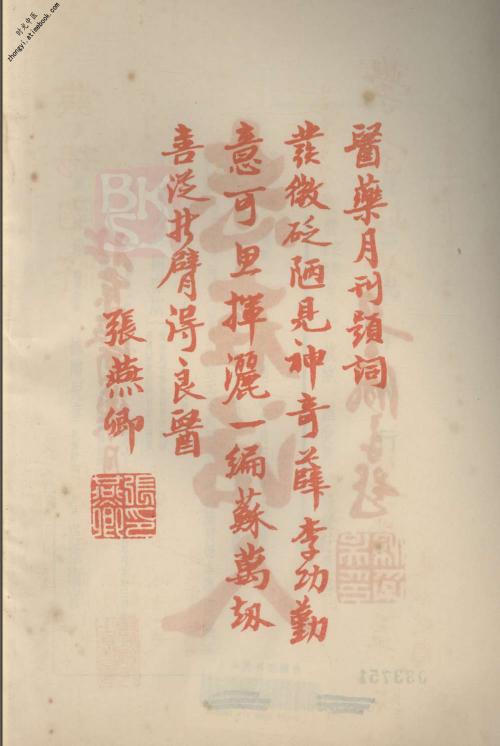 时光中医
zhongyi.atimebook.com
醫藥月刊題詞
發微砭陋見神奇薛李功勤
意可思揮灑一編蘇萬劫
喜從折臂得良醫
張燕卿
張印
燕卿
BK
S